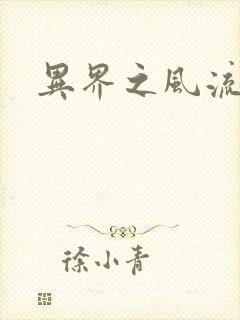 異界之風流
徐小青